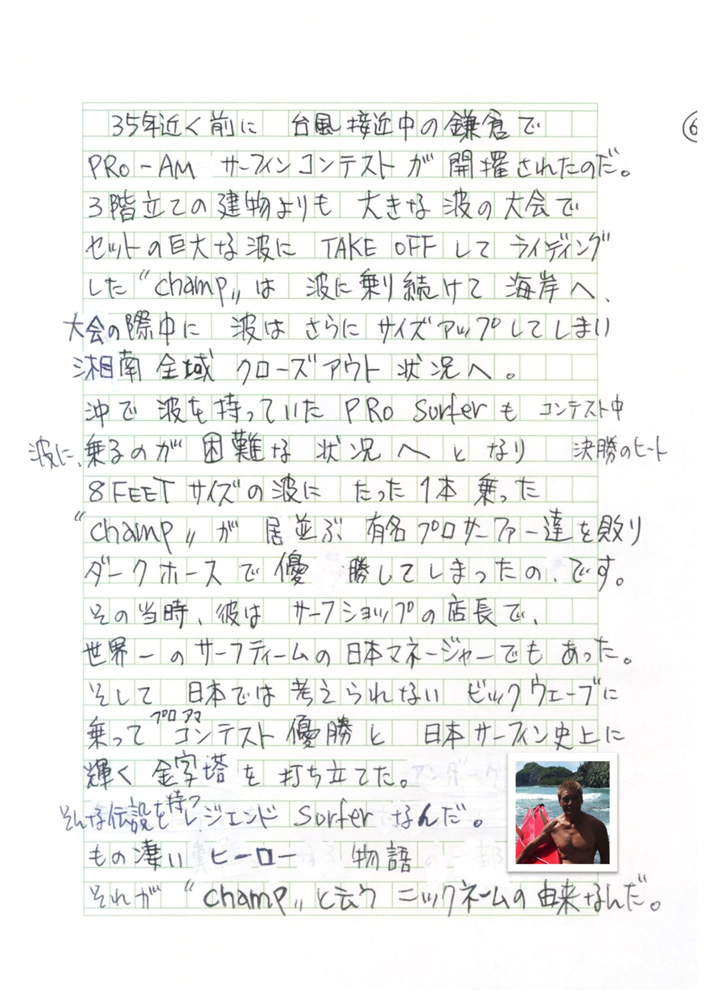 ⑥
35年近く前に 台風接近中の鎌倉で
PRO-AM サーフィンコンテストが 開催されたのだ。
3階立ての建物よりも 大きな波の大会で
セットの巨大な波に TAKE OFF して ライディング
した“champ„は 波に乗り続けて 海岸へ、
大会の際中に 波は さらに サイズアップしてしまい
湘南全域 クローズアウト 状況へ。
沖で 波を持っていた PRO Surferも コンテスト中
波に、乗るのが 困難な 状況へ となり 決勝のヒート
8FEETサイズの波に たった1本 乗った
“champ„が 居並ぶ 有名プロサーファー達を敗り
ダークホースで優 勝してしまったの、です。
その当時、彼は サーフショップの店長で、
世界一のサーフティームの日本マネージャーでもあった。
そして 日本では 考えられない ビックウェーブに
乗って プロアマコンテスト 優勝と 日本サーフィン史上に
輝く 金字塔を 打ち立てた。
そんな伝説を持つ レジェンド Surfer なんだ。
もの凄い ヒーロー 物語
それが “champ„と云う ニックネームの由来なんだ。